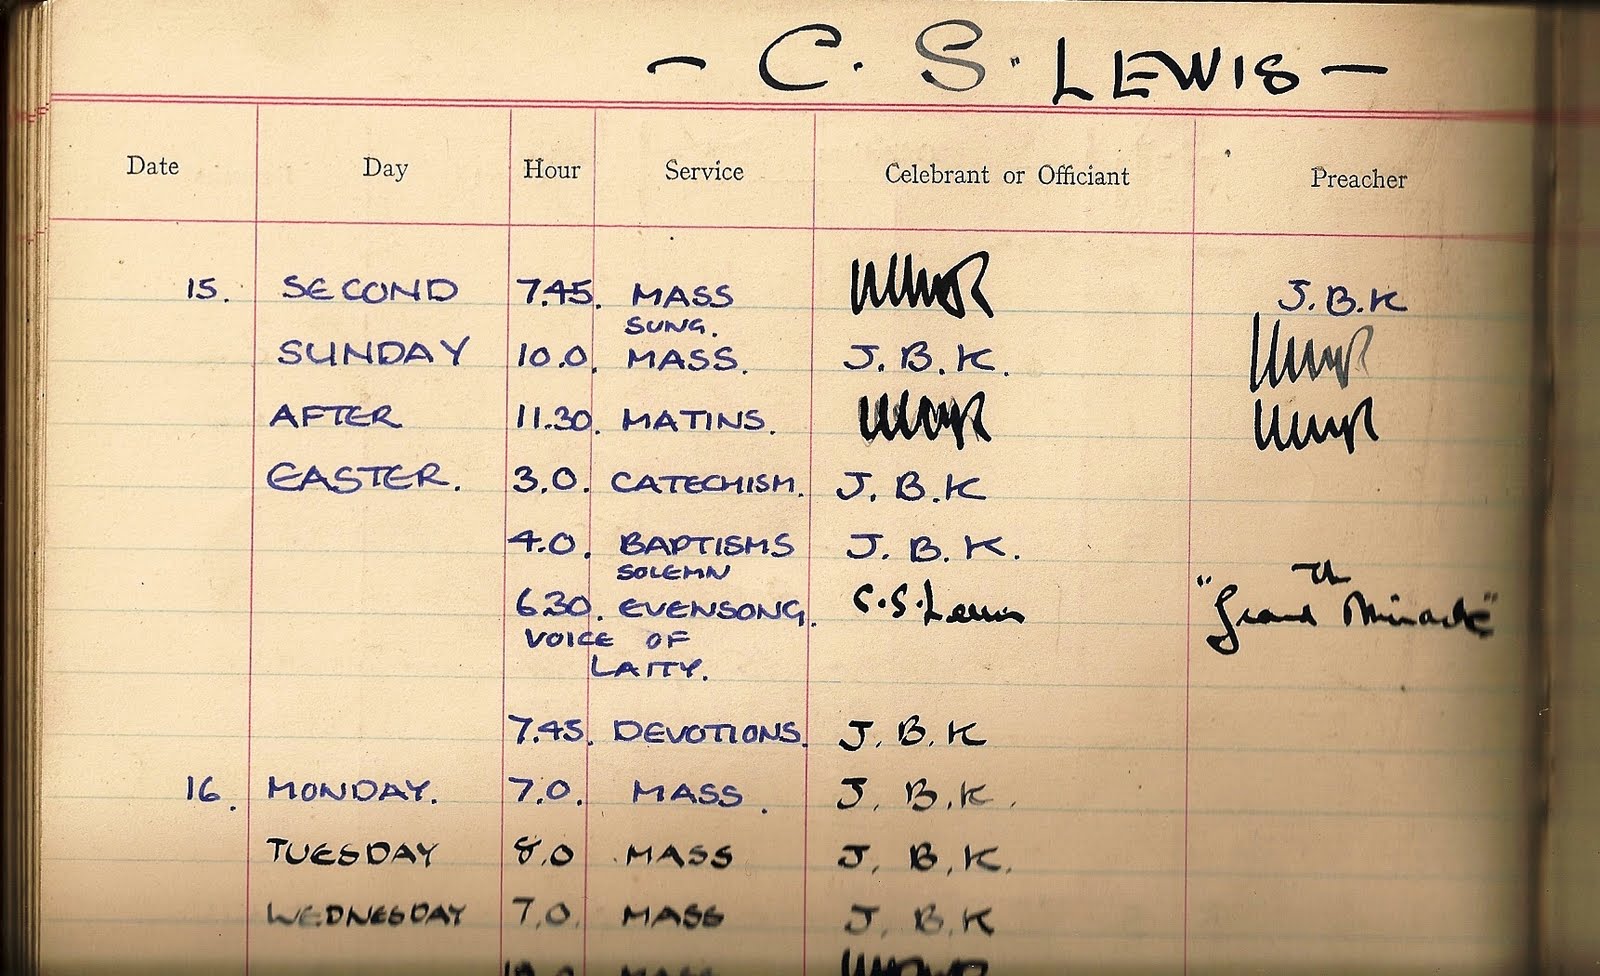 — C. S. LEWIS —
Date Day Hour Service Celebrant or Officiant Preacher
15. SECOND 7.45. MASS J.B.K
SUNG.
SUNDAY 10.0. MASS. J.B.K.
AFTER 11.30. MATINS.
EASTER. 3.0. CATECHISM. J.B.K
4.0. BAPTISMS J.B.K.
SOLEMN
6.30. EVENSONG. C.S. Lewis "The Grand Miracle"
VOICE OF
LAITY.
7.45. DEVOTIONS. J.B.K
16. MONDAY. 7.0. MASS. J.B.K.
TUESDAY 8.0 MASS J.B.K.
WEDNESDAY 7.0. MASS J.B.K
MASS